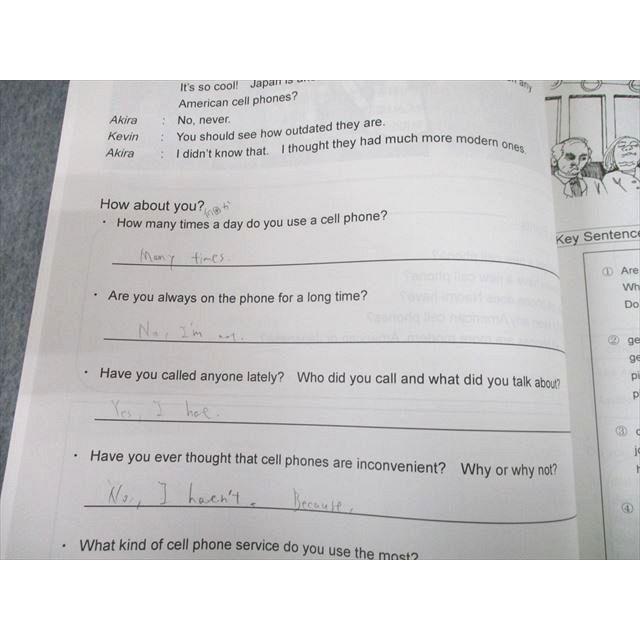 It's so cool! Japan is
any
American cell phones?
Akira : No, never.
Kevin : You should see how outdated they are.
Akira : I didn't know that. I thought they had much more modern ones.
How about you?
・ How many times a day do you use a cell phone?
Many times.
・ Are you always on the phone for a long time?
No, I'm not.
・ Have you called anyone lately? Who did you call and what did you talk about?
Yes, I hae.
・ Have you ever thought that cell phones are inconvenient? Why or why not?
No, I haen't. Because,
・ What kind of cell phone service do you use the most?
Key Sentence
① Are
Wh
Do
② ge
ge
pi
p
③
④